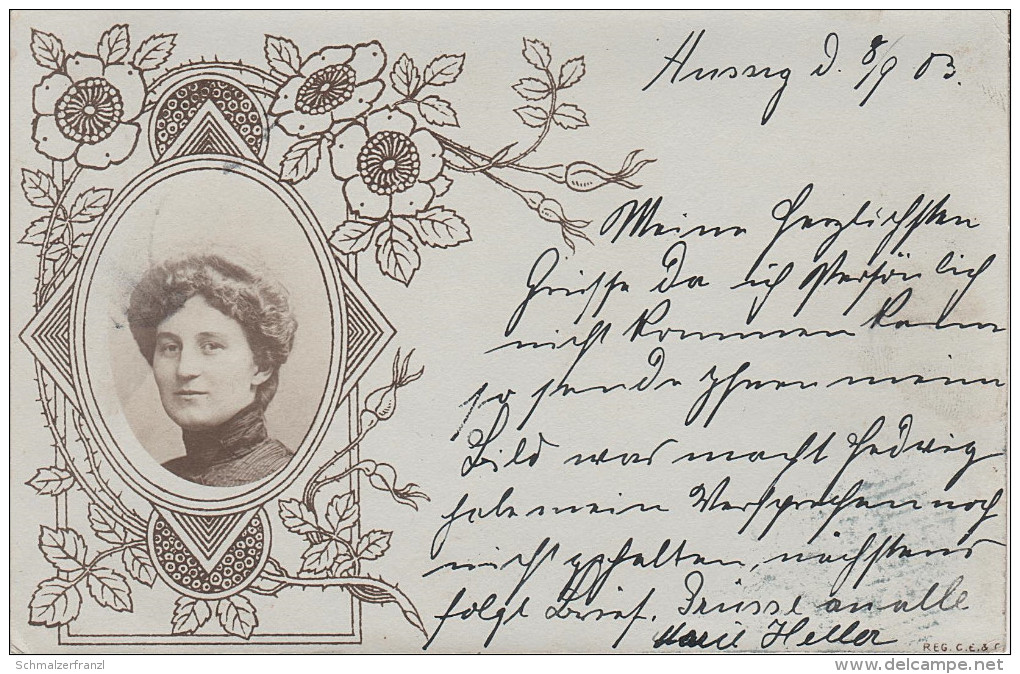 Aussig d. 8/9 03.
Meine herzlichsten
Grüsse da ich Persönlich
nicht kommen kann
so sende Ihnen mein
Bild was macht Hedwig
habe mein Versprechen noch
nicht gehalten, nächstens
folgt Brief. Grüsse an alle
Marie Heller
REG. C. E. &
Schmalzerfranzl
www.delcampe.net